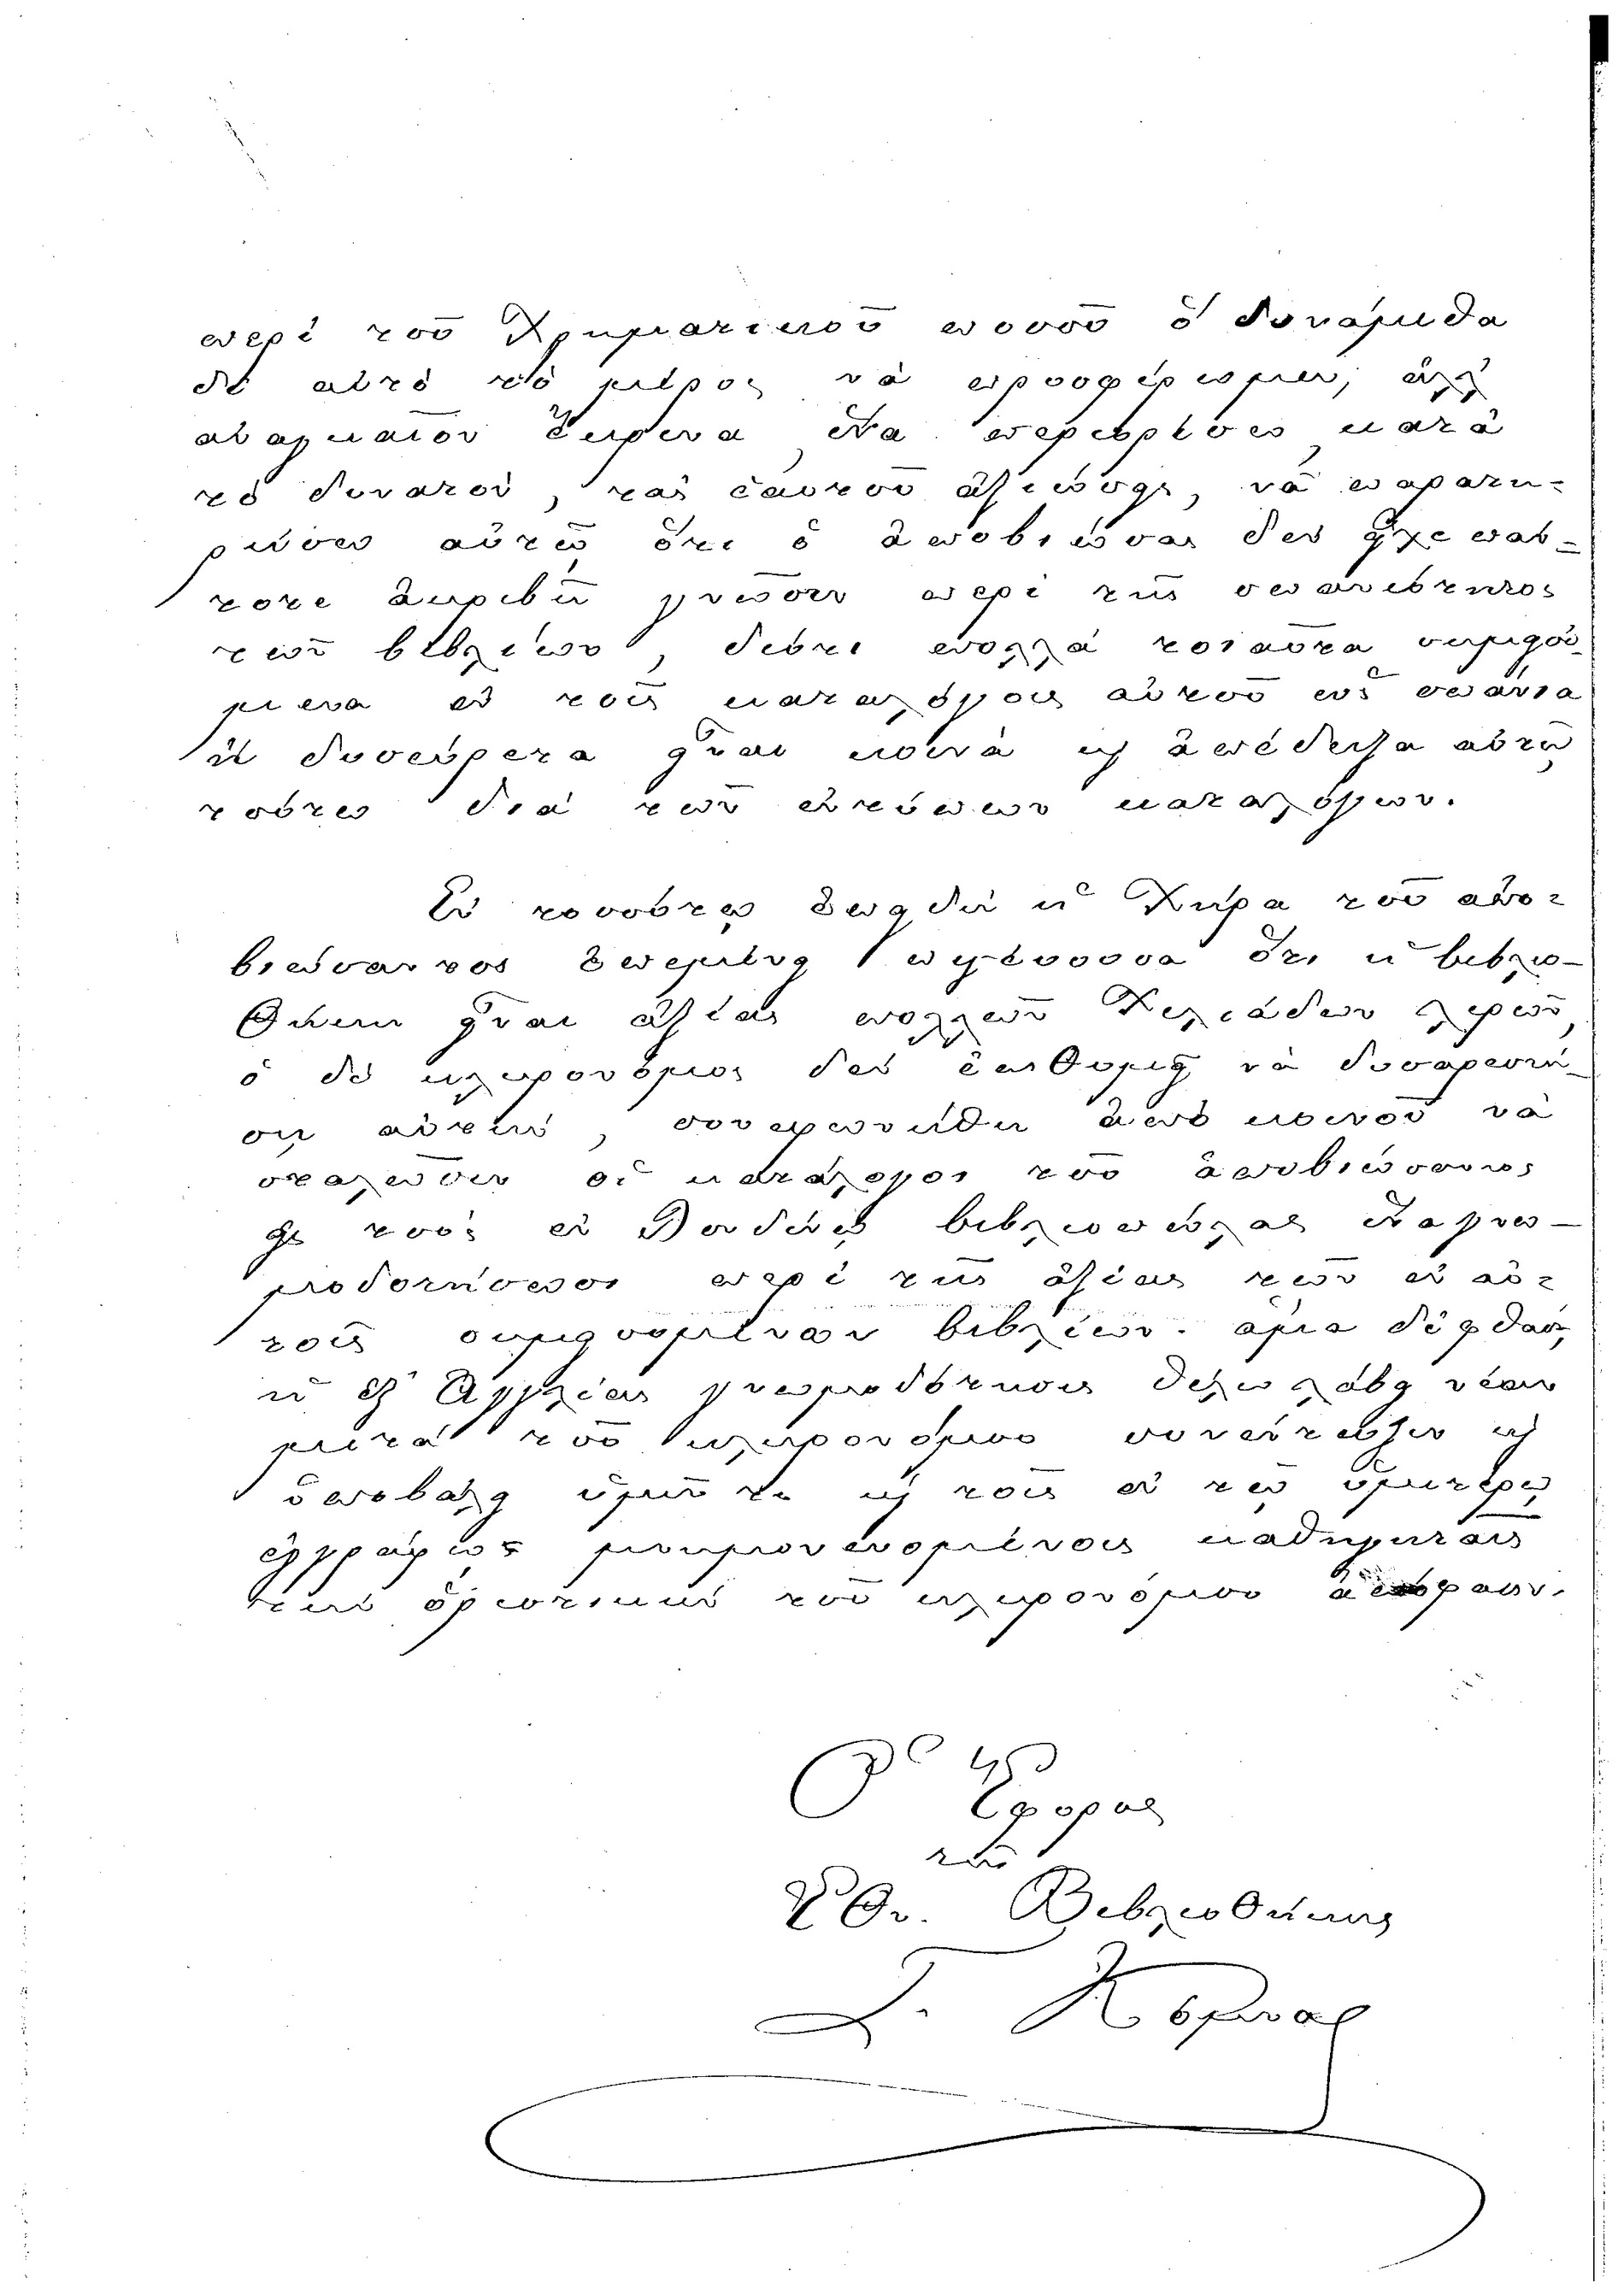 περὶ τοῦ Χρηματικοῦ ποσοῦ ὃ δυνάμεθα
δι' αὐτὸ τὸ μέρος νὰ προσφέρωμεν, ἀλλ'
ἀναγκαῖον ἔκρινα ἵνα περιορίσω κατὰ
τὸ δυνατὸν, τὰς ἑαυτοῦ ἀξιώσεις, νὰ παρατη-
ρήσω αὐτῷ ὅτι ὁ ἀποβιώσας δὲν εἶχε πάν-
τοτε ἀκριβῆ γνῶσιν περὶ τῆς σπανιότητος
τῶν βιβλίων, διότι πολλὰ τοιαῦτα σημειού-
μενα ἐν τοῖς καταλόγοις αὐτοῦ ὡς σπάνια
ἢ δυσεύρετα εἶναι κοινὰ καὶ ἀπέδειξα αὐτῷ
τοῦτο διὰ τῶν ἐντύπων καταλόγων.
Ἐν τοσούτῳ ἐπειδὴ ἡ Χήρα τοῦ ἀπο-
βιώσαντος ἐπέμεινε πιστεύουσα ὅτι ἡ βιβλιο-
θήκη εἶναι ἀξίας πολλῶν Χιλιάδων λιρῶν,
ὁ δὲ κληρονόμος δὲν ἐπεθύμει νὰ δυσαρεστή-
σῃ αὐτὴν, συνεφωνήθη ἀπὸ κοινοῦ νὰ
σταλῶσιν οἱ κατάλογοι τοῦ ἀποβιώσαντος
εἰς τοὺς ἐν Λονδίνῳ βιβλιοπώλας ἵνα γνω-
μοδοτήσωσι περὶ τῆς ἀξίας τῶν ἐν αὐ-
τοῖς σημειουμένων βιβλίων. ἅμα δὲ ἔλθῃ
ἡ ἐξ Ἀγγλίας γνωμοδότησις θέλω λάβει νέαν
μετὰ τοῦ κληρονόμου συνέντευξιν καὶ
ὑποβάλει ὑμῖν τε καὶ τοῖς ἐν τῷ ὑμετέρῳ
ἐγγράφῳ μνημονευομένοις καθηγηταῖς
τὴν ὁριστικὴν τοῦ κληρονόμου ἀπόφασιν.
Ὁ Ἔφορος
τῆς
Ἐθν. Βιβλιοθήκης